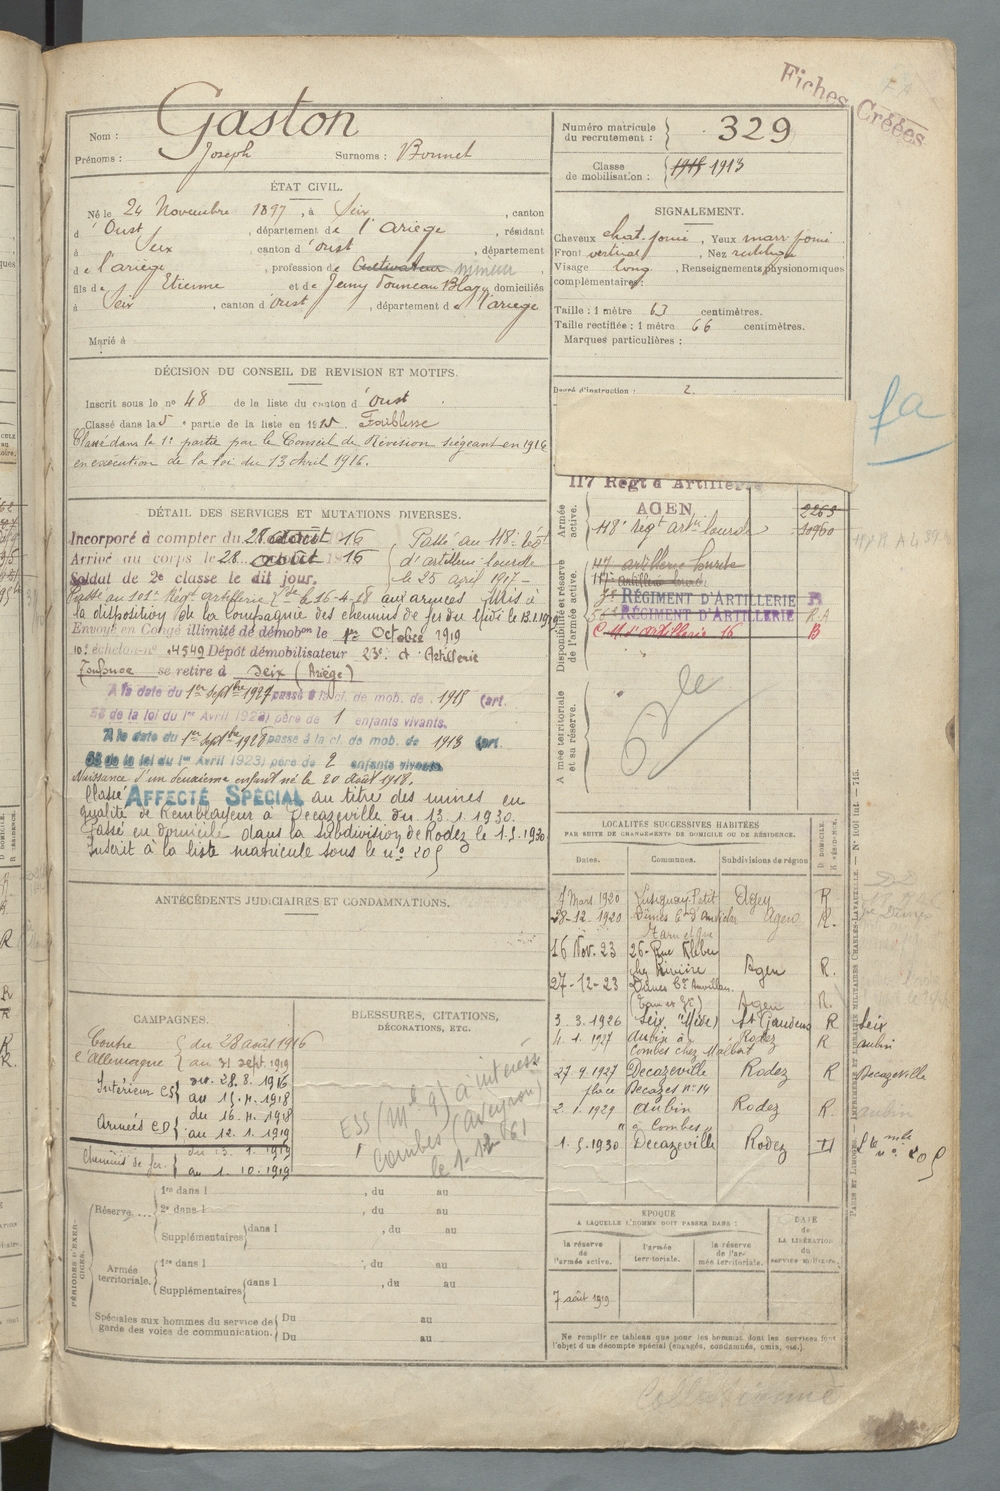 Fiches Créées
Nom : Gaston
Prénoms : Joseph Surnoms : Bonnet
Numéro matricule du recrutement : 329
Classe de mobilisation : 1915 1913
ÉTAT CIVIL.
Né le 24 Novembre 1897, à Seix, canton
d'Oust, département de l'Ariège, résidant
à Seix, canton d'Oust, département
de l'ariège, profession de Cultivateur mineur,
fils de Etienne et de Jeny Touneau Blazy domiciliés
à Seix, canton d'oust, département de l'ariège
Marié à
SIGNALEMENT.
Cheveux chat. foncé, Yeux marr foncé
Front vertical, Nez rectiligne
Visage long, Renseignements physionomiques
complémentaires :
Taille : 1 mètre 63 centimètres.
Taille rectifiée : 1 mètre 66 centimètres.
Marques particulières :
Degré d'instruction : 2.
DÉCISION DU CONSEIL DE REVISION ET MOTIFS.
Inscrit sous le nº 48 de la liste du canton d'Oust.
Classé dans la 5e partie de la liste en 1915. Faiblesse
Classé dans la 1e partie par le Conseil de Révision siégeant en 1916
en exécution de la loi du 13 Avril 1916.
fa
DÉTAIL DES SERVICES ET MUTATIONS DIVERSES.
Incorporé à compter du 28 août 1916
Arrivé au corps le 28 août 1916
Soldat de 2e classe le dit jour.
Passé au 118e Régt
d'artillerie lourde
le 25 avril 1917 -
Passé au 101e Régt artillerie lde le 16-4-18 aux armées Mis à
la disposition de la Compagnie des chemins de fer du Midi le 13.1.1919
Envoyé en Congé illimité de démobon le 1er Octobre 1919
10e échelon nº 4549 Dépôt démobilisateur 23e d'Artillerie
Toulouse se retire à Seix (Ariège)
A la date du 1er Septbre 1927 passé à la cl. de mob. de 1915 (art.
58 de la loi du 1er Avril 1923) père de 1 enfants vivants.
A la date du 1er Septbre 1928 passé à la cl. de mob. de 1913 (art.
58 de la loi du 1er Avril 1923) père de 2 enfants vivants
Naissance d'un deuxième enfant né le 20 août 1928.
Classé AFFECTÉ SPÉCIAL au titre des mines en
qualité de Remblayeur à Decazeville du 13.1.1930
Passé en domicile dans la subdivision de Rodez le 1.5.1930
Inscrit à la liste matricule sous le nº 205
117 Régt d'Artillerie
AGEN
118e Régt artie lourde
2263
10960
Armée active.
Disponibilité et réserve de l'armée active.
117 artillerie lourde
117e artillerie lourde
RÉGIMENT D'ARTILLERIE R
RÉGIMENT D'ARTILLERIE R.A
C.M d'artillerie 16 B
Armée territoriale et sa réserve.
LOCALITÉS SUCCESSIVES HABITÉES
PAR SUITE DE CHANGEMENTS DE DOMICILE OU DE RÉSIDENCE.
Dates. Communes. Subdivisions de région D DOMICILE. R RÉSIDENCE.
7 Mars 1920 Lusignan-Petit Agen R
28-12-1920 Agen R.
16 Nov. 23 26 Rue Kléber
chez Rivière Agen R.
27-12-23 Agen R.
3.3.1926 Seix "Mède" St Gaudens R Seix
4.1.1927 Aubin à Rodez R aubin
Combes chez Malbert
27.9.1927 Decazeville Rodez R Decazeville
place Decazes nº 14
2.1.1929 Aubin Rodez R. aubin
"à Combes"
1.5.1930 Decazeville Rodez D Lte mle nº 205
ANTÉCÉDENTS JUDICIAIRES ET CONDAMNATIONS.
CAMPAGNES.
Contre du 28 août 1916
l'Allemagne au 31 sept. 1919
Intérieur CS du 28.8.1916
au 15.4.1918
Armées CD du 16.4.1918
au 12.1.1919
Chemins de fer. du 13.1.1919
au 1.10.1919
BLESSURES, CITATIONS,
DÉCORATIONS, ETC.
ESS (Mle 9) à intéressé
Combes (Aveyron)
le 1-12-61
PÉRIODES D'EXERCICES.
Réserve ... 1re dans l , du au
2e dans l
Supplémentaires dans l , du au
Armée territoriale. 1re dans l , du au
Supplémentaires dans l , du au
Spéciales aux hommes du service de garde des voies de communication. Du au
Du au
ÉPOQUE
A LAQUELLE L'HOMME DOIT PASSER DANS :
DATE de LA LIBÉRATION du service militaire.
la réserve de l'armée active.
l'armée territoriale.
la réserve de l'armée territoriale.
7 août 1919
Ne remplir ce tableau que pour les hommes dont les services font
l'objet d'un décompte spécial (engagés, condamnés, omis, etc.).
PARIS ET LIMOGES. — IMPRIMERIE ET LIBRAIRIE MILITAIRES CHARLES-LAVAUZELLE. — Nº 1001 int — 715.